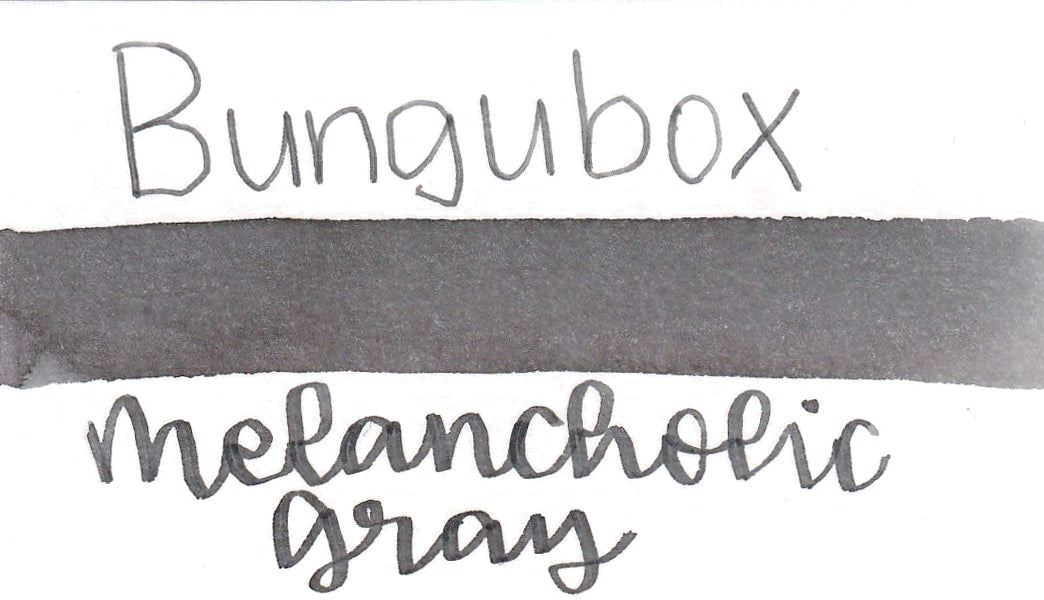 Bungubox
melancholic
gray